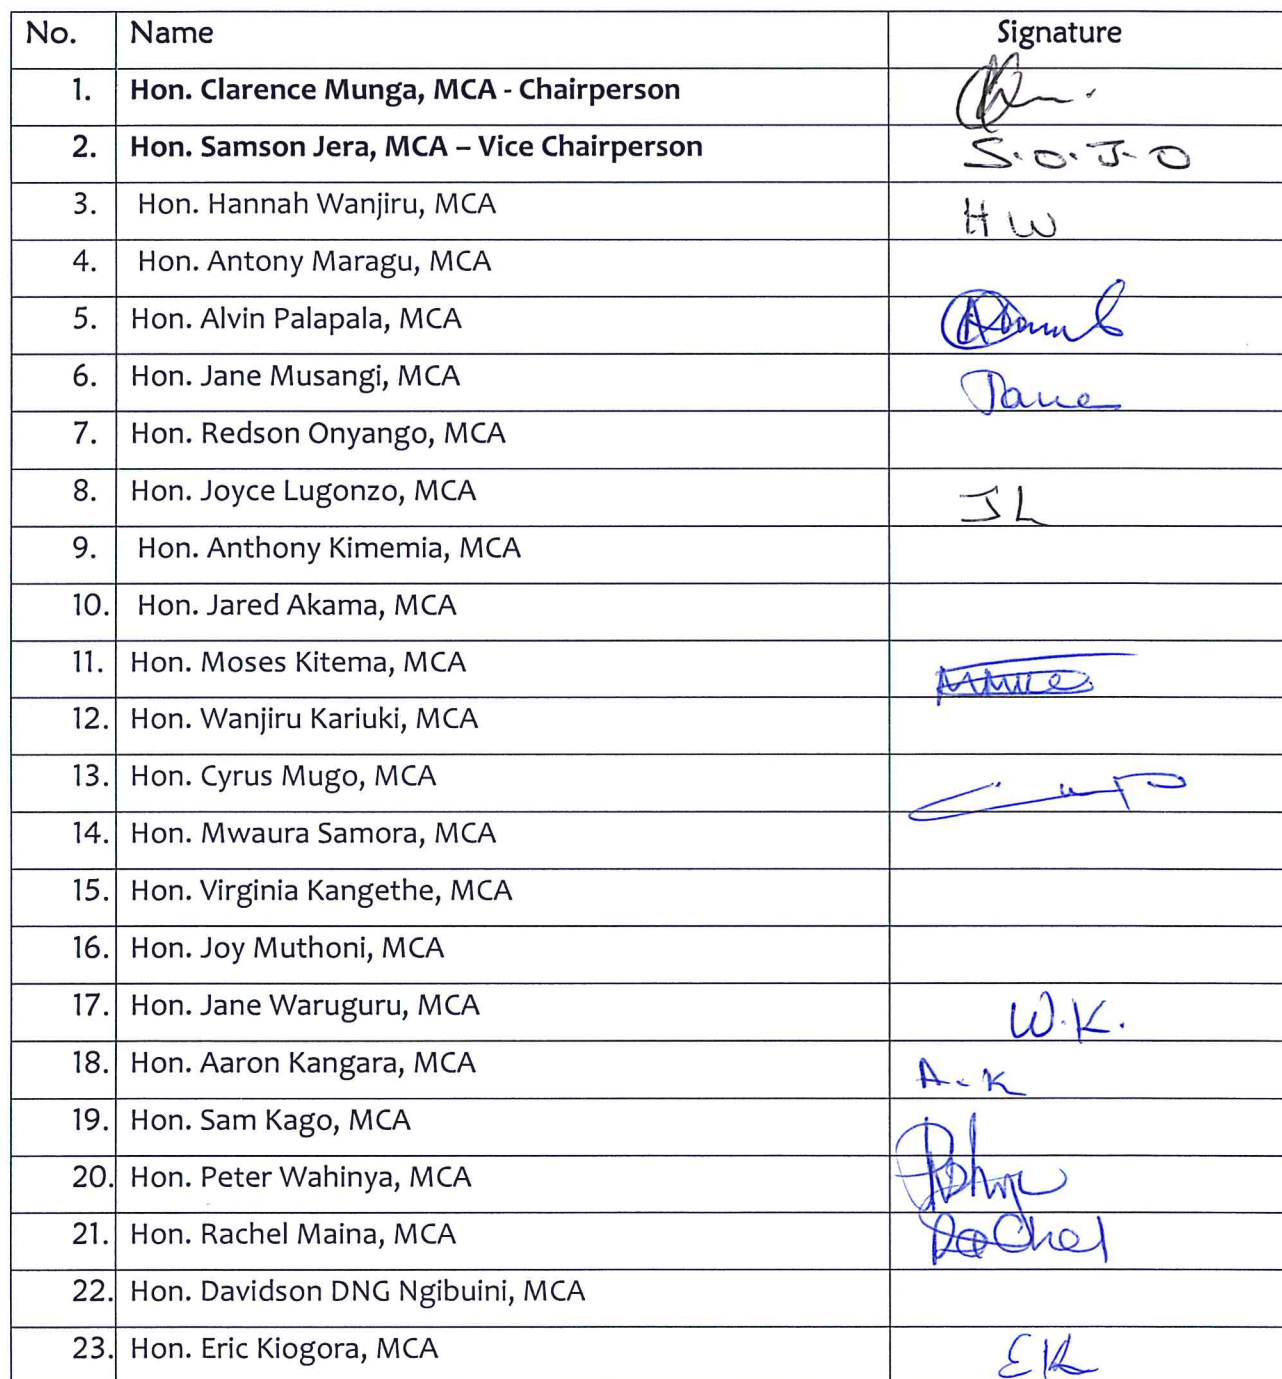 No. Name Signature
1. Hon. Clarence Munga, MCA - Chairperson
2. Hon. Samson Jera, MCA – Vice Chairperson S.O.J.O
3. Hon. Hannah Wanjiru, MCA H W
4. Hon. Antony Maragu, MCA
5. Hon. Alvin Palapala, MCA
6. Hon. Jane Musangi, MCA Jane
7. Hon. Redson Onyango, MCA
8. Hon. Joyce Lugonzo, MCA J L
9. Hon. Anthony Kimemia, MCA
10. Hon. Jared Akama, MCA
11. Hon. Moses Kitema, MCA
12. Hon. Wanjiru Kariuki, MCA
13. Hon. Cyrus Mugo, MCA
14. Hon. Mwaura Samora, MCA
15. Hon. Virginia Kangethe, MCA
16. Hon. Joy Muthoni, MCA
17. Hon. Jane Waruguru, MCA W.K.
18. Hon. Aaron Kangara, MCA A-K
19. Hon. Sam Kago, MCA
20. Hon. Peter Wahinya, MCA
21. Hon. Rachel Maina, MCA Rachel
22. Hon. Davidson DNG Ngibuini, MCA
23. Hon. Eric Kiogora, MCA EK